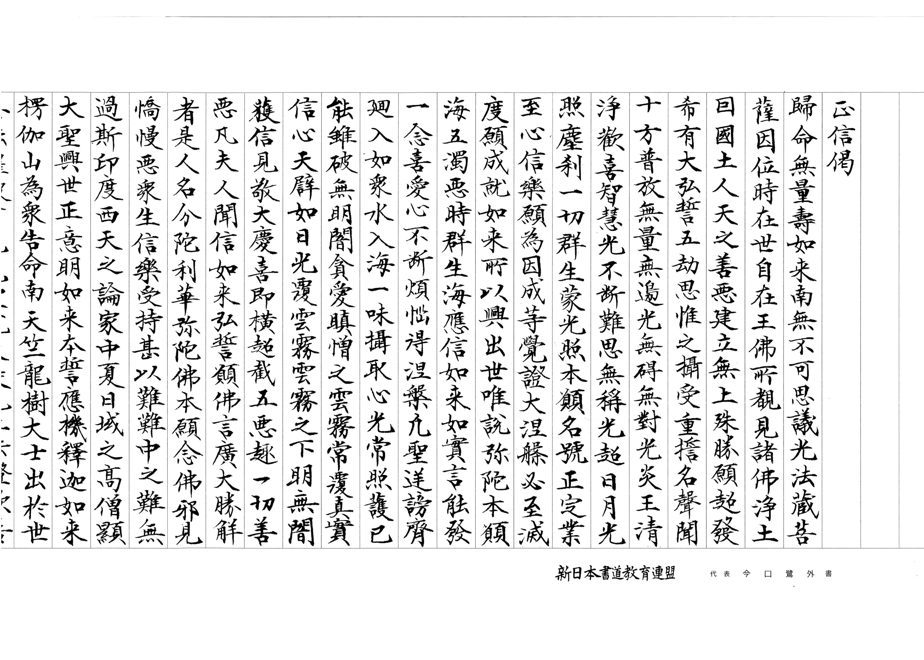 正信偈
歸命無量壽如来南無不可思議光法藏菩
薩因位時在世自在王佛所覩見諸佛浄土
因國土人天之善悪建立無上殊勝願超發
希有大弘誓五劫思惟之攝受重誓名聲聞
十方普放無量無邉光無碍無對光炎王清
浄歡喜智慧光不断難思無稱光超日月光
照塵刹一切群生蒙光照本願名號正定業
至心信樂願為因成等覺證大涅槃必至滅
度願成就如来所以興出世唯説弥陀本願
海五濁悪時群生海應信如来如實言能發
一念喜愛心不断煩悩得涅槃凡聖逆謗齊
廻入如衆水入海一味攝取心光常照護已
能雖破無明闇貪愛瞋憎之雲霧常覆真實
信心天譬如日光覆雲霧雲霧之下明無闇
獲信見敬大慶喜即横超截五悪趣一切善
悪凡夫人聞信如来弘誓願佛言廣大勝解
者是人名分陀利華弥陀佛本願念佛邪見
憍慢悪衆生信樂受持甚以難難中之難無
過斯印度西天之論家中夏日域之高僧顯
大聖興世正意明如来本誓應機釋迦如来
楞伽山為衆告命南天竺龍樹大士出於世
新日本書道教育連盟 代表 今口鷺外書